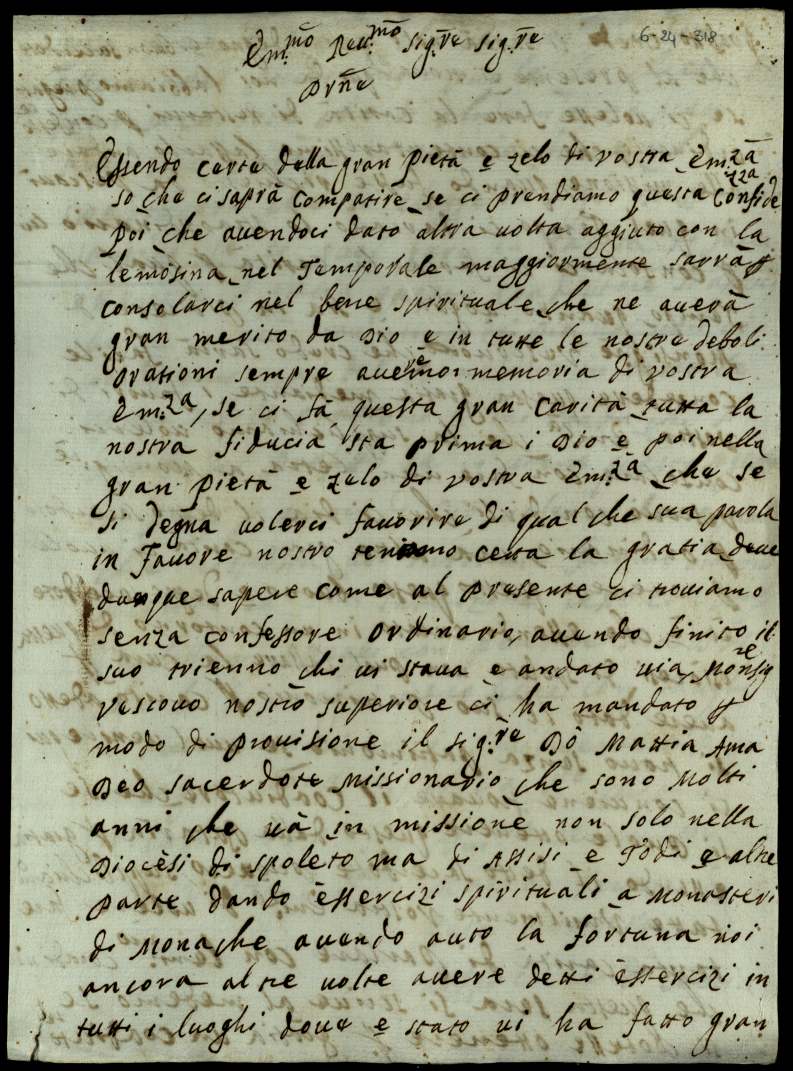 6-24-318
Em.mo Reu.mo sig.re sig.re
Prne
Essendo certe della gran pietà e zelo di vostra Em.za
so che ci saprà compatire se ci prendiamo questa Confide
nza
poi che auendoci dato altra uolta aggiuto con la
lemosina nel Temporale maggiormente sarrà p
consolarci nel bene spirituale che ne auerà
gran merito da Dio e in tutte le nostre deboli
orationi sempre aueremo memoria di vostra
Em.za, se ci fà questa gran Carità tutta la
nostra fiducia sta prima i Dio e poi nella
gran pietà e zelo di vostra Em.za che se
si degna uolerci fauorire di qual che sua parola
in Fauore nostro teniamo certa la gratia deue
dunque sapere come al presente ci trouiamo
senza confessore ordinario, auendo finito il
suo trienno chi ui staua e andato uia, Monsig
re
vescouo nostro superiore ci ha mandato p
modo di prouisione il sig.re Dò Mattia Ama
Deo sacerdote Missionario che sono Molti
anni che uà in missione non solo nella
Diocèsi di spoleto ma di Assisi e Todi e altre
parte dando èssercizi spirituali a Monasteri
di Monache auendo auto la fortuna noi
ancora altre uolte auere detti èssercizi in
tutti i luoghi doue e stato ui ha fatto gran